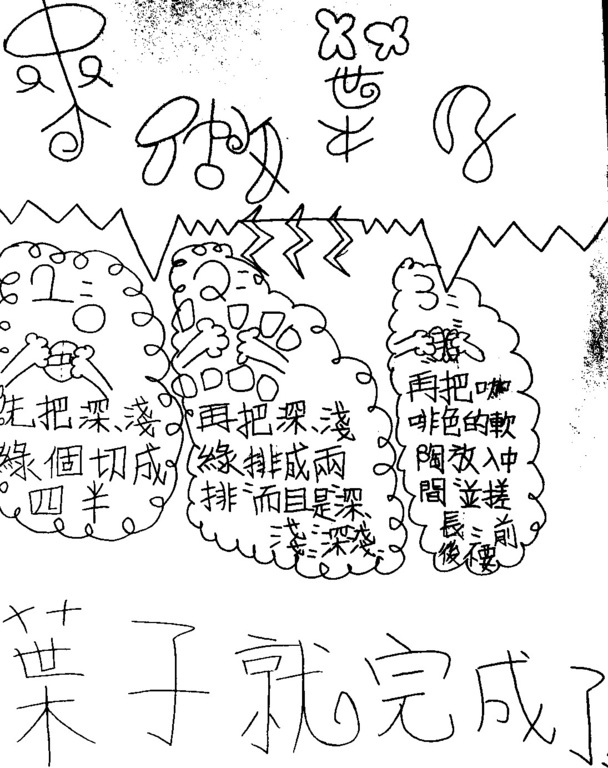 來做葉子
1:
先把深、淺
綠個切成
四半
2:
再把深、淺
綠排成兩
排而且是深、
淺、深淺
3:
再把咖
啡色的軟
陶放入中
間並搓
長前
後
葉子就完成了